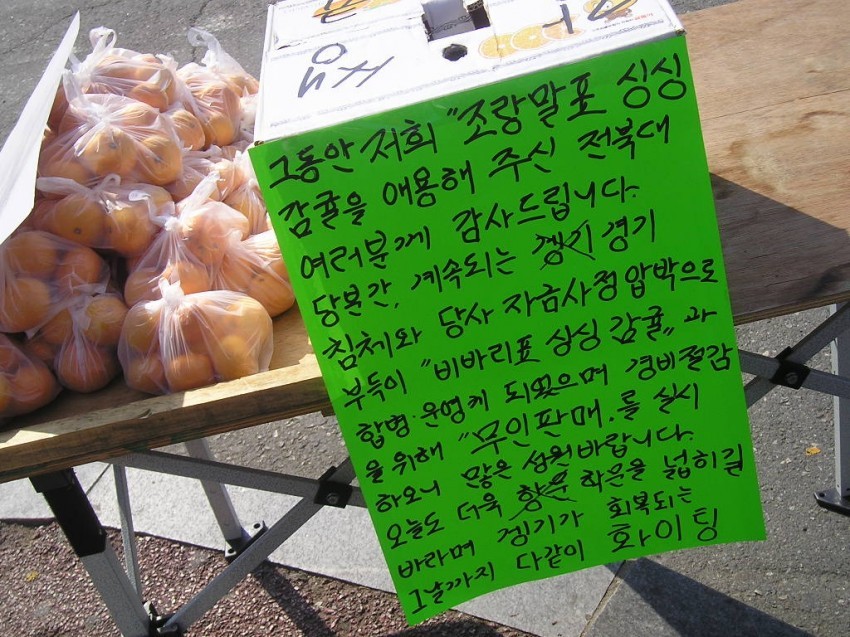 그동안 저희 "조랑말표 싱싱
감귤을 애용해 주신 전북대
여러분께 감사드립니다.
당분간, 계속되는 경기
침체와 당사 자금사정압박으로
부득이 "비바리표 싱싱감귤" 과
합병·운영케 되었으며 경비절감
을 위해 "무인판매.를 실시
하오니 많은 성원바랍니다.
오늘도 더욱 학문을 넓히길
바라며 겡기가 회복되는
그날까지 다같이 화이팅